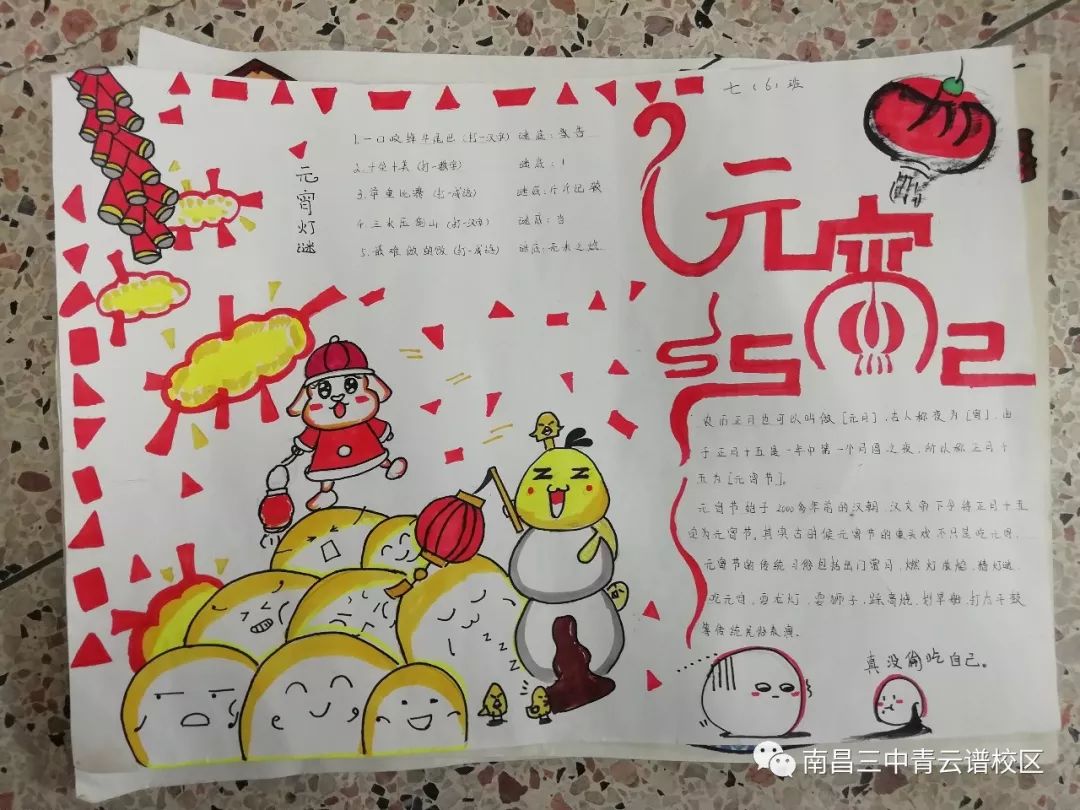 七（6）班
元宵
元宵灯谜
1.一口咬掉牛尾巴（打一汉字） 谜底：告
2.十全十美（打一数字） 谜底：1
3.举重比赛（打一成语） 谜底：斤斤计较
4.三 山（打一汉字） 谜底：当
5.最难做的饭（打一成语） 谜底：无米之炊
农历正月也可以叫做［元月］，古人称夜为［宵］，由
于正月十五是一年中第一个月圆之夜，所以称正月十
五为［元宵节］。
元宵节始于2000多年前的汉朝，汉文帝下令将正月十五
定为元宵节，其实古时候元宵节的重头戏不只是吃元宵，
元宵节的传统习俗包括出门赏月，燃灯放焰，猜灯谜，
吃元宵，耍龙灯，耍狮子，踩高跷，划旱船，打太平鼓
等传统民俗表演．
真没偷吃自己。
南昌三中青云谱校区